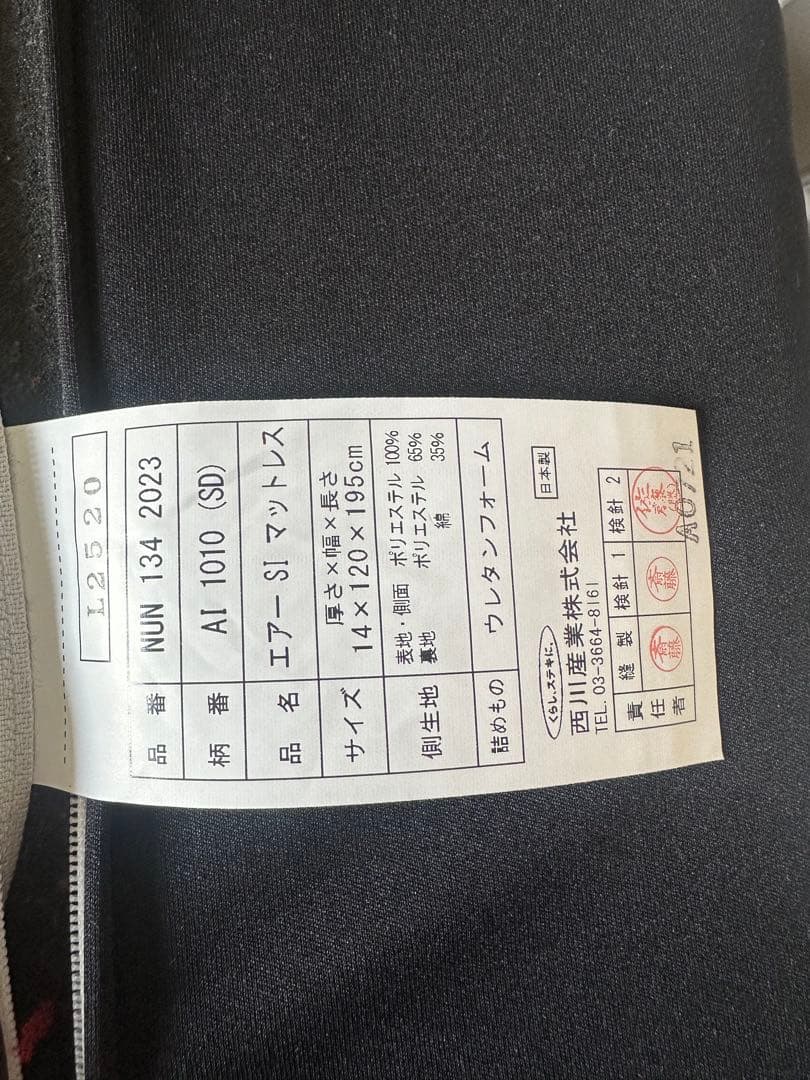 L2520
品番 NUN 134 2023
柄番 AI 1010 (SD)
品名 エアーSI マットレス
サイズ 厚さ×幅×長さ
14×120×195cm
側生地 表地・側面 ポリエステル 100%
裏地 ポリエステル 65%
綿 35%
詰めもの ウレタンフォーム
くらし、ステキに。
日本製
西川産業株式会社
TEL. 03-3664-8161
責任者 縫製 検針1 検針2
斎藤 斎藤
A0721